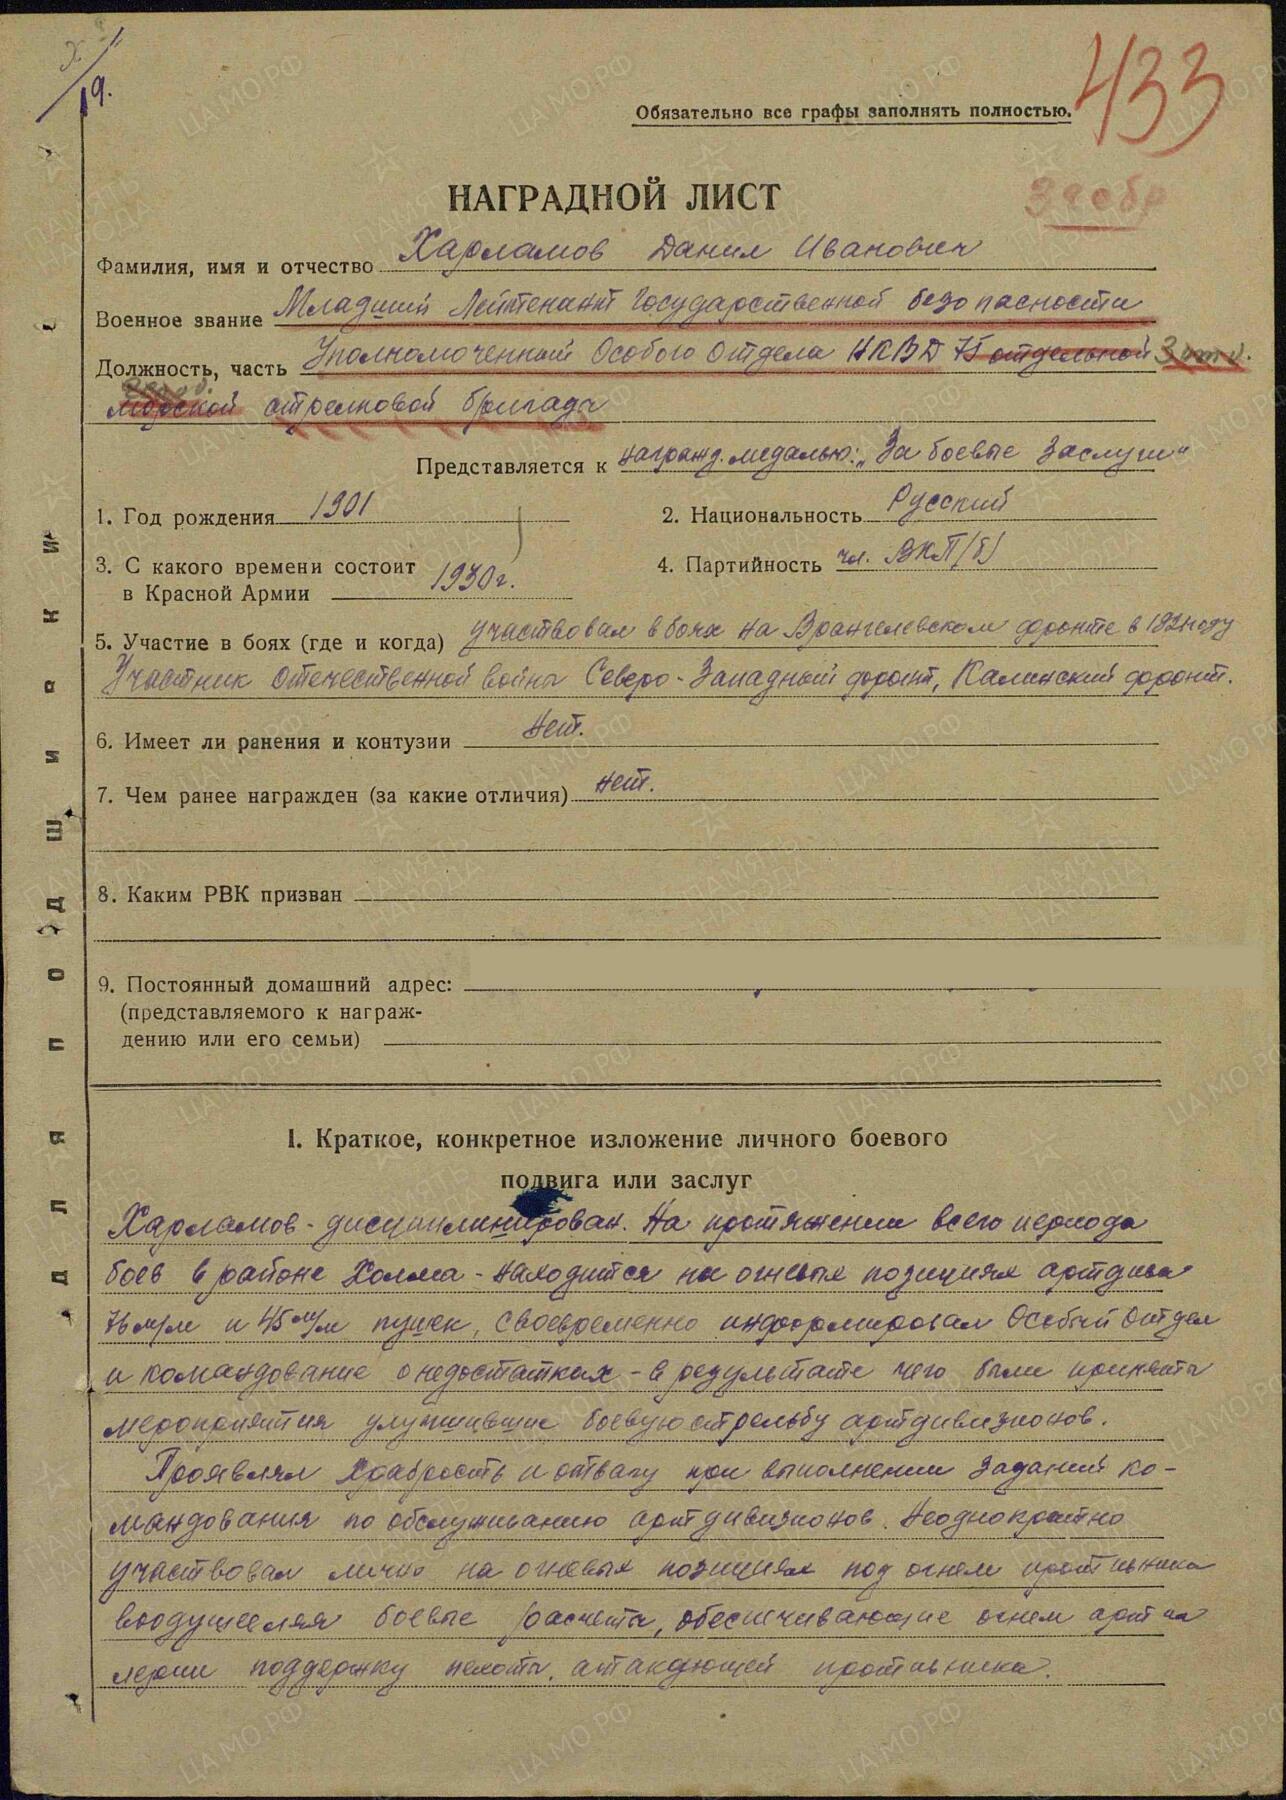 19.
433
Обязательно все графы заполнять полностью.
НАГРАДНОЙ ЛИСТ
Фамилия, имя и отчество Харламов Данил Иванович
Военное звание Младший Лейтенант Государственной безопасности
Должность, часть Уполномоченный Особого Отдела НКВД 75 отдельной
морской стрелковой бригады
Представляется к награжд. медалью: „За боевые заслуги"
1. Год рождения 1901
2. Национальность Русский
3. С какого времени состоит
в Красной Армии 1930 г.
4. Партийность чл. ВКП/б/
5. Участие в боях (где и когда) участвовал в боях на Врангелевском фронте в 192 году
Участник отечественной войны Северо-Западный фронт, Калинский фронт.
6. Имеет ли ранения и контузии Нет.
7. Чем ранее награжден (за какие отличия) нет.
8. Каким РВК призван
9. Постоянный домашний адрес:
(представляемого к награж-
дению или его семьи)
Для подшивки
I. Краткое, конкретное изложение личного боевого
подвига или заслуг
Харламов - дисциплинирован. На протяжении всего периода
боев в районе Холма - находится на огневых позициях артдива
76 м/м и 45 м/м пушек, своевременно информировал Особый Отдел
и командование о недостатках - в результате чего были приняты
мероприятия улучшившие боевую стрельбу артдивизионов.
Проявлял храбрость и отвагу при выполнении заданий ко-
мандования по обслуживанию артдивизионов. Неоднократно
участвовал лично на огневых позициях под огнем противника
воодушевляя боевые расчеты, обеспечивающие огнем артил
лерии поддержку пехоты, атакующей противника.